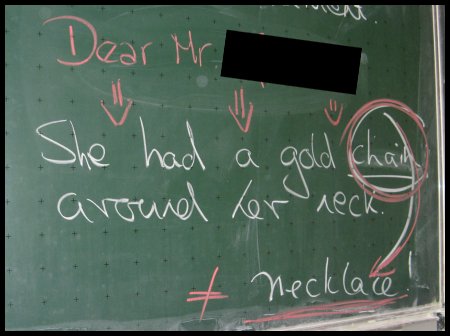 Dear Mr
She had a gold chain
around her neck.
≠ necklace!